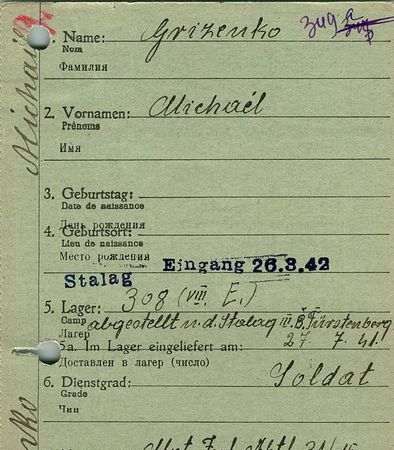 1. Name: Grizenko
Nom
Фамилия
2. Vornamen: Michaél
Prénoms
Имя
3. Geburtstag:
Date de naissance
День рождения
4. Geburtsort:
Lieu de naissance
Место рождения
Eingang 26.3.42
Stalag
5. Lager: 308 (VIII. E.)
Camp abgestellt n. d. Stalag III. B. Fürstenberg
Лагер
5a. Im Lager eingeliefert am: 27. 7. 41.
Доставлен в лагер (число)
6. Dienstgrad: Soldat
Grade
Чин
Michaél